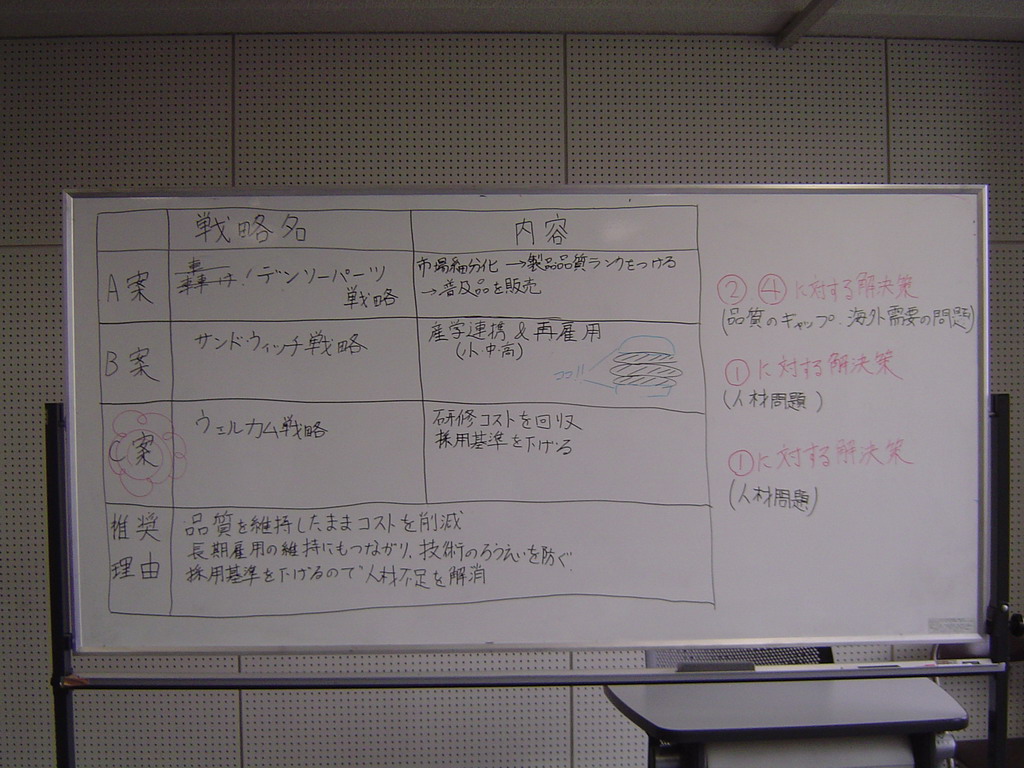 戦略名 内容
A案 轟け!デンソーパーツ
戦略
市場細分化→製品品質ランクをつける
→普及品を販売
②、④に対する解決策
(品質のギャップ、海外需要の問題)
B案 サンドウィッチ戦略
産学連携&再雇用
(小中高)
ココ!!
①に対する解決策
(人材問題)
C案 ウェルカム戦略
研修コストを回収
採用基準を下げる
①に対する解決策
(人材問題)
推奨
理由
品質を維持したままコストを削減
長期雇用の維持にもつながり、技術のろうえいを防ぐ.
採用基準を下げるので人材不足を解消